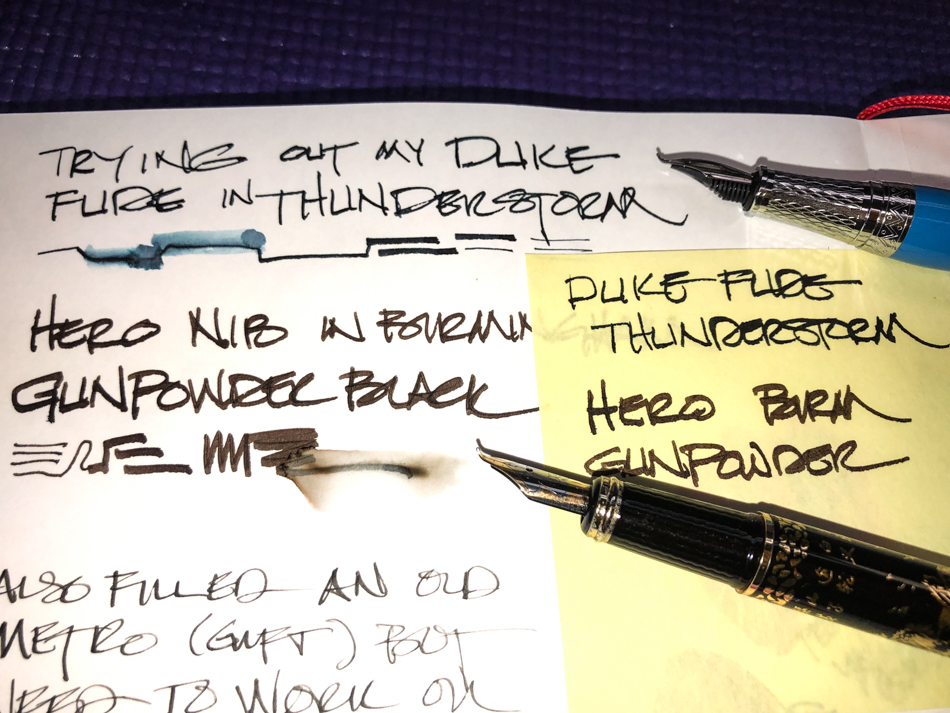 TRYING OUT MY DUKE
FUDE IN THUNDERSTORM
HERO NIB IN BURNIN
GUNPOWDER BLACK
ALSO FILLED AN OLD
METRO (GIFT) BUT
NEED TO WORK ON
DUKE FUDE
THUNDERSTORM
HERO BURN
GUNPOWDER